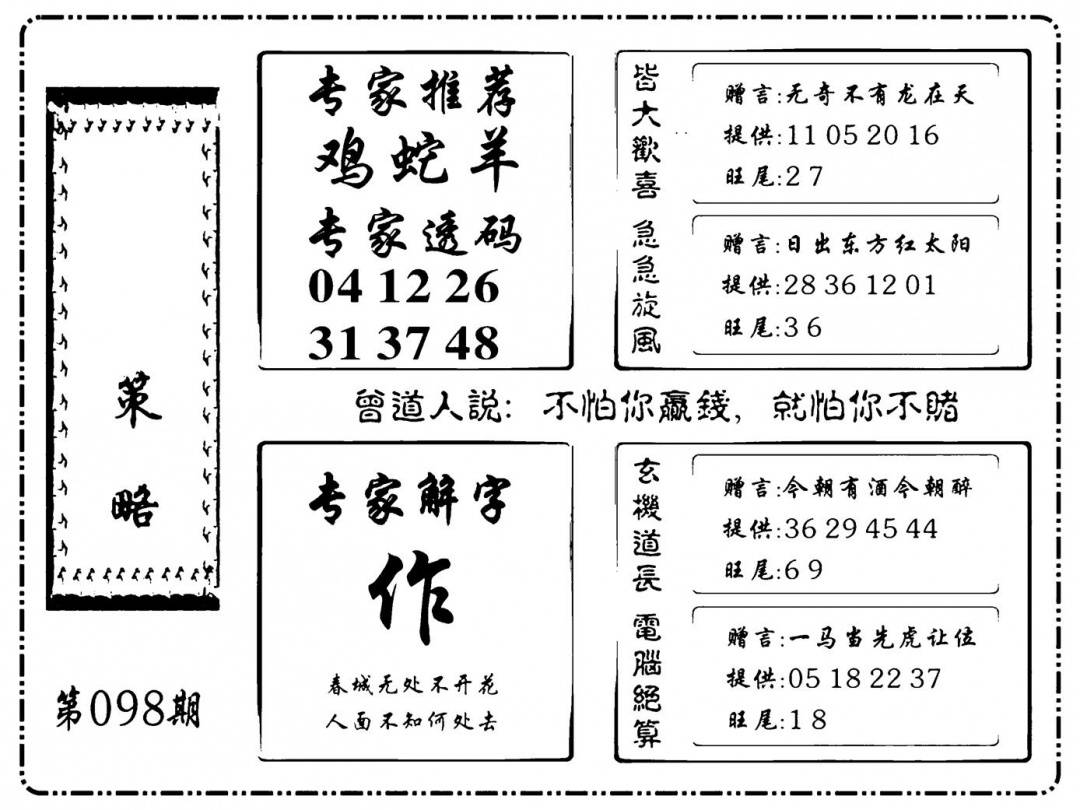 策略
第098期
专家推荐
鸡蛇羊
专家透码
04 12 26
31 37 48
皆大歡喜
赠言:无奇不有龙在天
提供:11 05 20 16
旺尾:2 7
急急旋風
赠言:日出东方红太阳
提供:28 36 12 01
旺尾:3 6
曾道人説: 不怕你贏錢, 就怕你不賭
专家解字
作
春城无处不开花
人面不知何处去
玄機道長
赠言:今朝有酒今朝醉
提供:36 29 45 44
旺尾:6 9
電腦絕算
赠言:一马当先虎让位
提供:05 18 22 37
旺尾:1 8